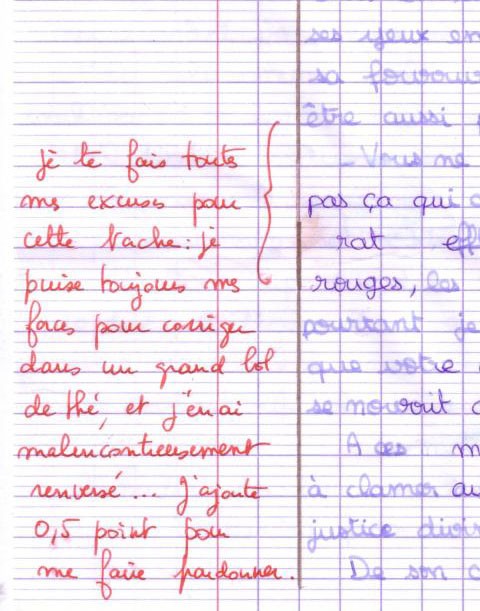 je te fais toutes
mes excuses pour
cette tache : je
puise toujours mes
forces pour corriger
dans un grand bol
de thé, et j'en ai
malencontreusement
renversé... j'ajoute
0,5 point pour
me faire pardonner.
ses yeux en
sa
être aussi
- Vous ne
pas ça qui
rat
rouges, les
pourtant je
que votre
se nourrit
A ces
à clamer au
justice
De son